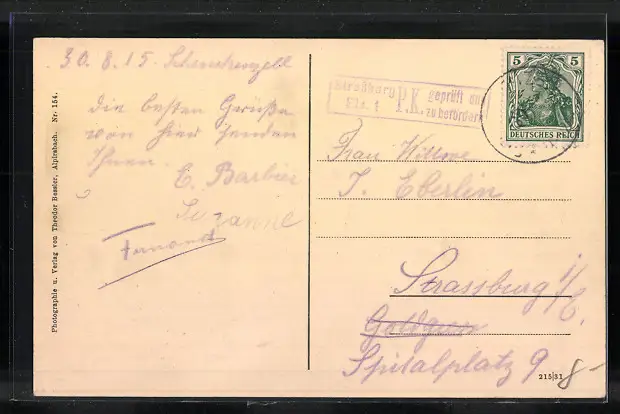 30. 8. 15. Schenkenzell
die besten Grüße
von hier senden
Ihnen
E. Barbier
Suzanne
Fernand
Photographie u. Verlag von Theodor Bessler, Alpirsbach. Nr. 154.
Straßburg
Els. 1
P.K. geprüft und
zu befördern
5 5
DEUTSCHES REICH
Frau Wittwe
J. Eberlin
Strassburg i/E.
Spitalplatz 9
215|31
8-